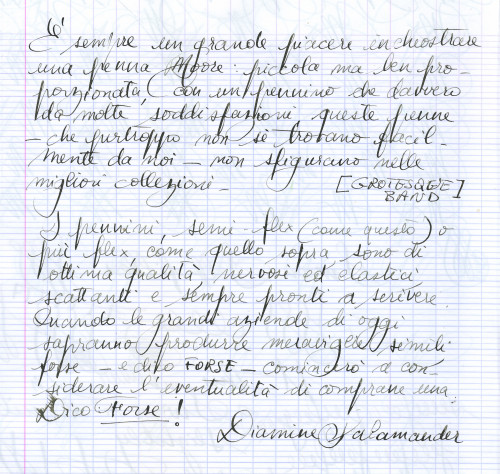 E' sempre un grande piacere inchiostrare
una penna Moore: piccola ma ben pro-
porzionata, con un pennino che davvero
dà molte soddisfazioni queste penne
- che purtroppo non si trovano facil-
mente da noi - non sfigurano nelle
migliori collezioni. [GROTESQUE
BAND]
I pennini, semi-flex (come questo) o
più flex, come quello sopra, sono di
ottima qualità, nervosi ed elastici
scattanti e sempre pronti a scrivere.
Quando le grandi aziende di oggi
sapranno produrre meraviglie simili
forse - e dico FORSE - comincerò a con-
siderare l'eventualità di comprane una.
Dico Forse!
Diamine Salamander